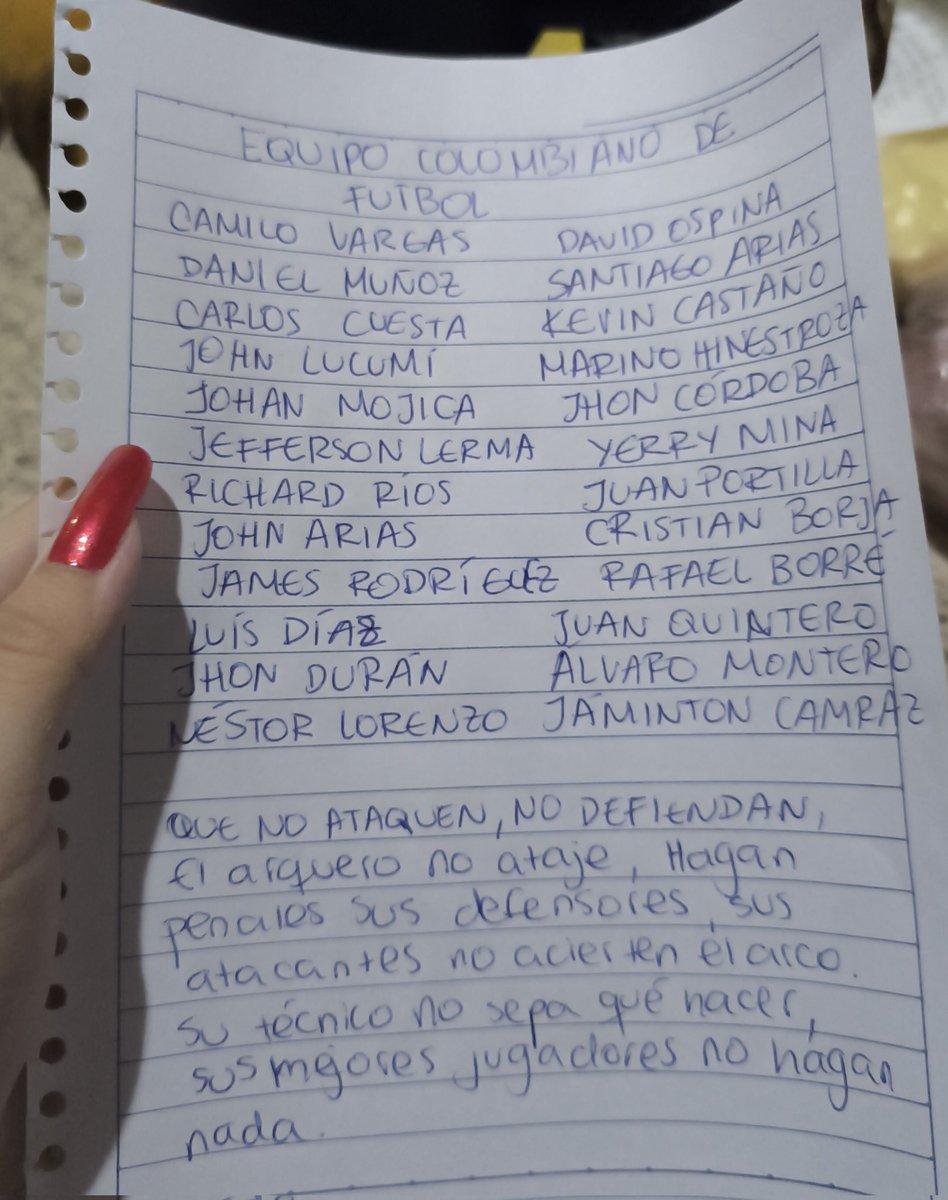 EQUIPO COLOMBIANO DE
FUTBOL
CAMILO VARGAS DAVID OSPINA
DANIEL MUÑOZ SANTIAGO ARIAS
CARLOS CUESTA KEVIN CASTAÑO
JOHN LUCUMÍ MARINO HINESTROZA
JOHAN MOJICA JHON CÓRDOBA
JEFFERSON LERMA YERRY MINA
RICHARD RÍOS JUAN PORTILLA
JOHN ARIAS CRISTIAN BORJA
JAMES RODRÍGUEZ RAFAEL BORRÉ
LUÍS DÍAZ JUAN QUINTERO
JHON DURÁN ÁLVARO MONTERO
NÉSTOR LORENZO JÁMINTON CAMPAZ
QUE NO ATAQUEN, NO DEFIENDAN,
El arquero no ataje, Hagan
penales sus defensores, sus
atacantes no acierten el arco.
su técnico no sepa qué hacer,
sus mejores jugadores no hagan
nada.